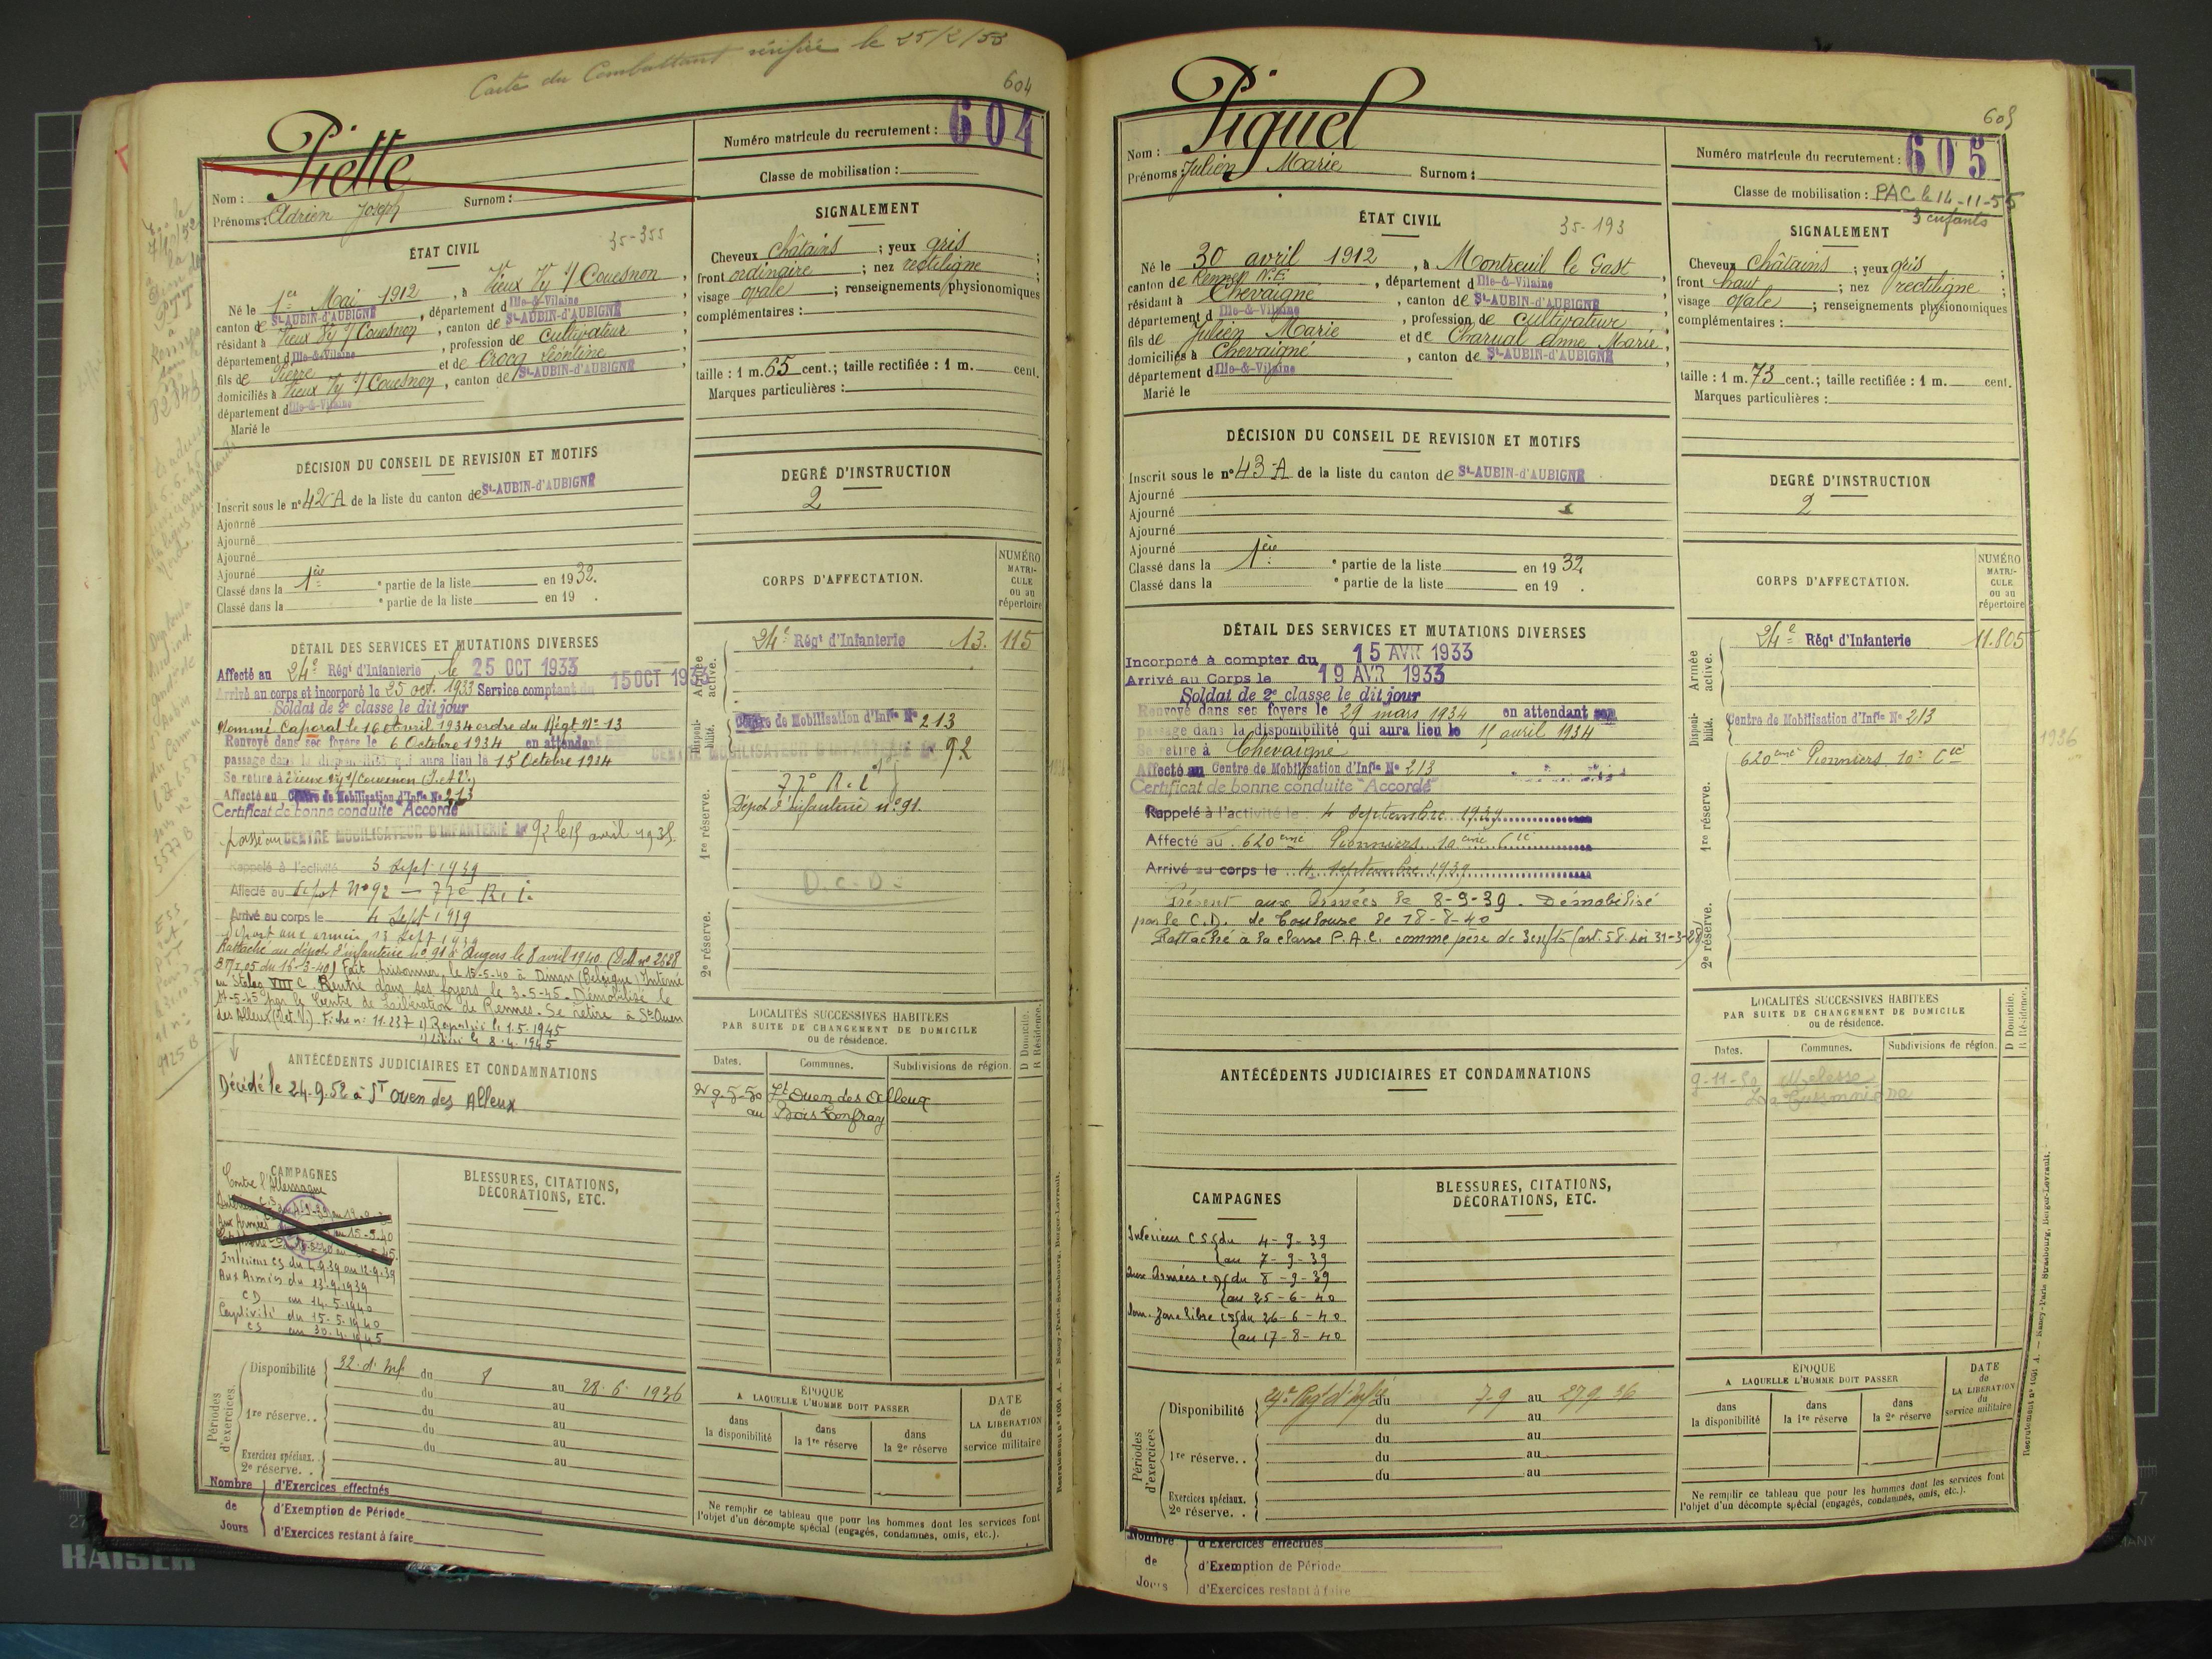 Carte du Combattant vérifiée le 25/2/53
604
Nom : Piette
Numéro matricule du recrutement : 604
Prénoms : Adrien Joseph Surnom :
Classe de mobilisation :
ÉTAT CIVIL
35-355
Né le 1er Mai 1912, à Vieux Vy s/ Couesnon,
canton de St-AUBIN-d'AUBIGNÉ, département d Ille-&-Vilaine
résidant à Vieux Vy s/ Couesnon, canton de St-AUBIN-d'AUBIGNÉ
département d Ille-&-Vilaine, profession de cultivateur
fils de Pierre et de Crocq Léontine
domiciliés à Vieux Vy s/ Couesnon, canton de St-AUBIN-d'AUBIGNÉ
département d Ille-&-Vilaine
Marié le
SIGNALEMENT
Cheveux châtains ; yeux gris ;
front ordinaire ; nez rectiligne ;
visage ovale ; renseignements physionomiques
complémentaires :
taille : 1 m. 65 cent.; taille rectifiée : 1 m. cent.
Marques particulières :
DÉCISION DU CONSEIL DE REVISION ET MOTIFS
Inscrit sous le n° 42-A de la liste du canton de St-AUBIN-d'AUBIGNÉ
Ajourné
Ajourné
Ajourné
Ajourné
Classé dans la 1ère partie de la liste en 1932.
Classé dans la ° partie de la liste en 19 .
DEGRÉ D'INSTRUCTION
2
CORPS D'AFFECTATION.
NUMÉRO MATRI-CULE ou au répertoire
Armée active.
24e Régt d'Infanterie 13.115
Disponi-bilité.
Centre de Mobilisation d'Infie N° 213
CENTRE MOBILISATEUR D'INFANTERIE N° 92
1re réserve.
77° R.I
Dépot d'infanterie n° 91.
D.C.D.
2e réserve.
DÉTAIL DES SERVICES ET MUTATIONS DIVERSES
Affecté au 24e Régt d'Infanterie le 25 OCT 1933
Arrivé au corps et incorporé le 25 oct. 1933 Service comptant du 15 OCT 1933
Soldat de 2e classe le dit jour
Nommé Caporal le 16 Avril 1934 ordre du Régt N° 13
Renvoyé dans ses foyers le 6 Octobre 1934 en attendant
passage dans la disponibilité qui aura lieu le 15 Octobre 1934
Se retire à Vieux Vy s/ Couesnon (I. et V.)
Affecté au Centre de Mobilisation d'Infie N° 213
Certificat de bonne conduite "Accordé"
passé au CENTRE MOBILISATEUR D'INFANTERIE N° 92 le 15 avril 1935.
Rappelé à l'activité 3 Sept 1939
Affecté au Dépot N° 92 — 77e R.I.
Arrivé au corps le 4 Sept 1939
Départ aux armées 13 Sept 1939
Rattaché au dépôt d'infanterie n° 91 à Angers le 8 avril 1940. (
du 16-3-40) Fait prisonnier le 15-5-40 à Dinan (Belgique) Interné
au Stalag VIII C. Rentré dans ses foyers le 3-5-45. Démobilisé le
par le Centre de Libération de Rennes. Se retire à St Ouen
des Alleux (I. et V.) Fiche n° 11.237 Rapatrié le 1.5.1945
libéré le 8.4.1945
ANTÉCÉDENTS JUDICIAIRES ET CONDAMNATIONS
Décédé le 24.9.52 à St Ouen des Alleux
LOCALITÉS SUCCESSIVES HABITÉES
PAR SUITE DE CHANGEMENT DE DOMICILE
ou de résidence.
D Domicile.
R Résidence.
Dates. Communes. Subdivisions de région.
9-5-50 St Ouen des Alleux
au Bois
CAMPAGNES
Contre l'Allemagne
Intérieur CS du 4.9.39 au 12.9.39
Aux Armées du 13.9.1939
CD au 14.5.1940
Captivité du 15.5.1940
CS au 30.4.1945
BLESSURES, CITATIONS,
DÉCORATIONS, ETC.
Périodes d'exercices.
Disponibilité 32e d'Inf du 8 au 28.6.1936
du au
1re réserve.. du au
du au
du au
Exercices spéciaux. au
2e réserve. .
Nombre de Jours
d'Exercices effectués
d'Exemption de Période
d'Exercices restant à faire
ÉPOQUE
A LAQUELLE L'HOMME DOIT PASSER
dans la disponibilité
dans la 1re réserve
dans la 2e réserve
DATE de LA LIBÉRATION du service militaire
Ne remplir ce tableau que pour les hommes dont les services font
l'objet d'un décompte spécial (engagés, condamnés, omis, etc.).
Recrutement n° 1091 A. — Nancy-Paris-Strasbourg, Berger-Levrault.
605
Nom : Piquel
Numéro matricule du recrutement : 605
Prénoms : Julien Marie Surnom :
Classe de mobilisation : PAC le 14-11-55
3 enfants
ÉTAT CIVIL
35-193
Né le 30 avril 1912, à Montreuil le Gast,
canton de Rennes N.E., département d Ille-&-Vilaine
résidant à Chevaigné, canton de St-AUBIN-d'AUBIGNÉ
département d Ille-&-Vilaine, profession de cultivateur
fils de Julien Marie et de Charual Anne Marie,
domiciliés à Chevaigné, canton de St-AUBIN-d'AUBIGNÉ
département d Ille-&-Vilaine
Marié le
SIGNALEMENT
Cheveux châtains ; yeux gris ;
front haut ; nez rectiligne ;
visage ovale ; renseignements physionomiques
complémentaires :
taille : 1 m. 73 cent.; taille rectifiée : 1 m. cent.
Marques particulières :
DÉCISION DU CONSEIL DE REVISION ET MOTIFS
Inscrit sous le n° 43-A de la liste du canton de St-AUBIN-d'AUBIGNÉ
Ajourné
Ajourné
Ajourné
Ajourné
Classé dans la 1ère partie de la liste en 1932.
Classé dans la ° partie de la liste en 19 .
DEGRÉ D'INSTRUCTION
2
CORPS D'AFFECTATION.
NUMÉRO MATRI-CULE ou au répertoire
Armée active.
24e Régt d'Infanterie 11.805
Disponi-bilité.
Centre de Mobilisation d'Infie N° 213
1936
1re réserve.
620ème Pionniers 10e Cie
2e réserve.
DÉTAIL DES SERVICES ET MUTATIONS DIVERSES
Incorporé à compter du 15 AVR 1933
Arrivé au Corps le 19 AVR 1933
Soldat de 2e classe le dit jour
Renvoyé dans ses foyers le 29 mars 1934 en attendant son
passage dans la disponibilité qui aura lieu le 15 avril 1934
Se retire à Chevaigné
Affecté au Centre de Mobilisation d'Infie N° 213
Certificat de bonne conduite "Accordé"
Rappelé à l'activité le 4 septembre 1939
Affecté au 620ème Pionniers 10ème Cie
Arrivé au corps le 4 septembre 1939
Présent aux Armées le 8-9-39. Démobilisé
par le C.D. de Toulouse le 18-8-40
Rattaché à la classe P.A.C. comme père de 3 enfts (art. 58 Loi 31-3-28)
ANTÉCÉDENTS JUDICIAIRES ET CONDAMNATIONS
LOCALITÉS SUCCESSIVES HABITÉES
PAR SUITE DE CHANGEMENT DE DOMICILE
ou de résidence.
D Domicile.
R Résidence.
Dates. Communes. Subdivisions de région.
9-11-50 Melesse
CAMPAGNES
Intérieur CS du 4-9-39
au 7-9-39
aux Armées du 8-9-39
au 25-6-40
zone libre CS du 26-6-40
au 17-8-40
BLESSURES, CITATIONS,
DÉCORATIONS, ETC.
Périodes d'exercices
Disponibilité du 7-9 au 27 9.36
du au
du au
1re réserve.. du au
du au
Exercices spéciaux.
2e réserve. .
Nombre de Jours
d'Exercices effectués
d'Exemption de Période
d'Exercices restant à faire
ÉPOQUE
A LAQUELLE L'HOMME DOIT PASSER
dans la disponibilité
dans la 1re réserve
dans la 2e réserve
DATE de LA LIBÉRATION du service militaire
Ne remplir ce tableau que pour les hommes dont les services font
l'objet d'un décompte spécial (engagés, condamnés, omis, etc.).
Recrutement n° 1091 A. — Nancy-Paris-Strasbourg, Berger-Levrault.
KAISER